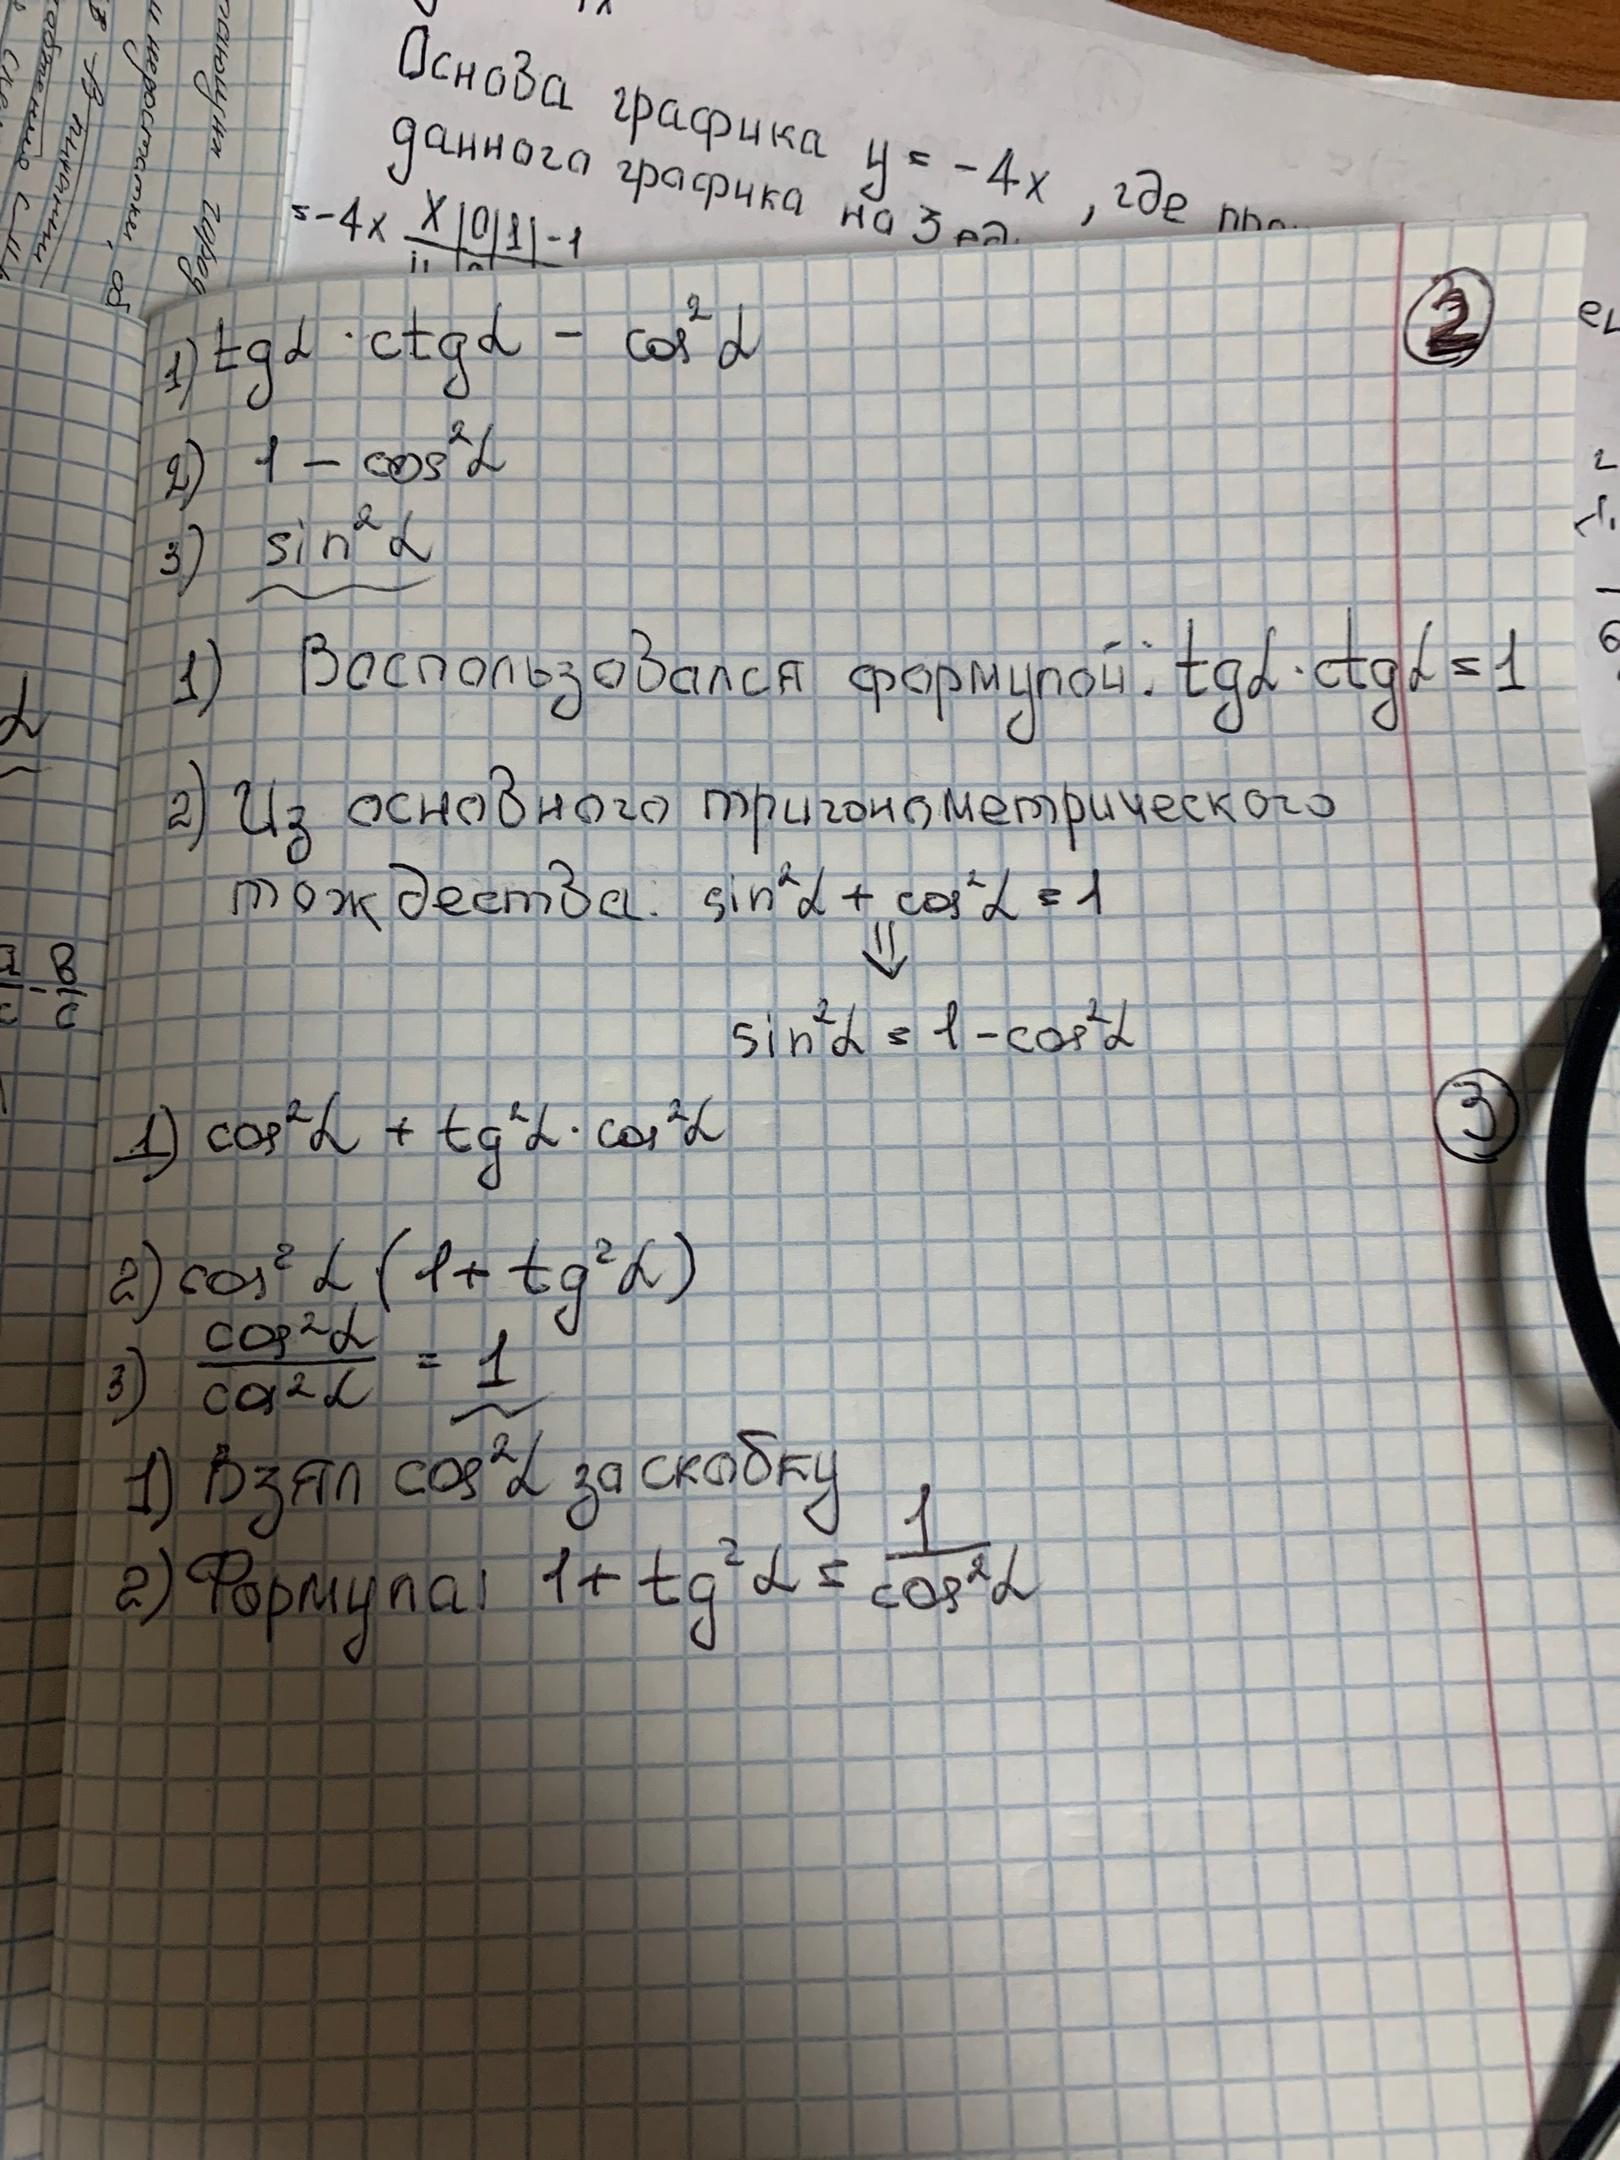 Основа графика y = -4x , где
данного графика на 3 ед.
=-4x X|0|1|-1
1) tgα · ctgα - cos²α
2
2) 1 - cos²α
3) sin²α
1) Воспользовался формулой: tgα · ctgα = 1
2) Из основного тригонометрического
тождества: sin²α + cos²α = 1
⇓
sin²α = 1 - cos²α
3
1) cos²α + tg²α · cos²α
2) cos²α (1 + tg²α)
3) cos²α/cos²α = 1
1) Взял cos²α за скобку
2) Формула: 1 + tg²α = 1/cos²α